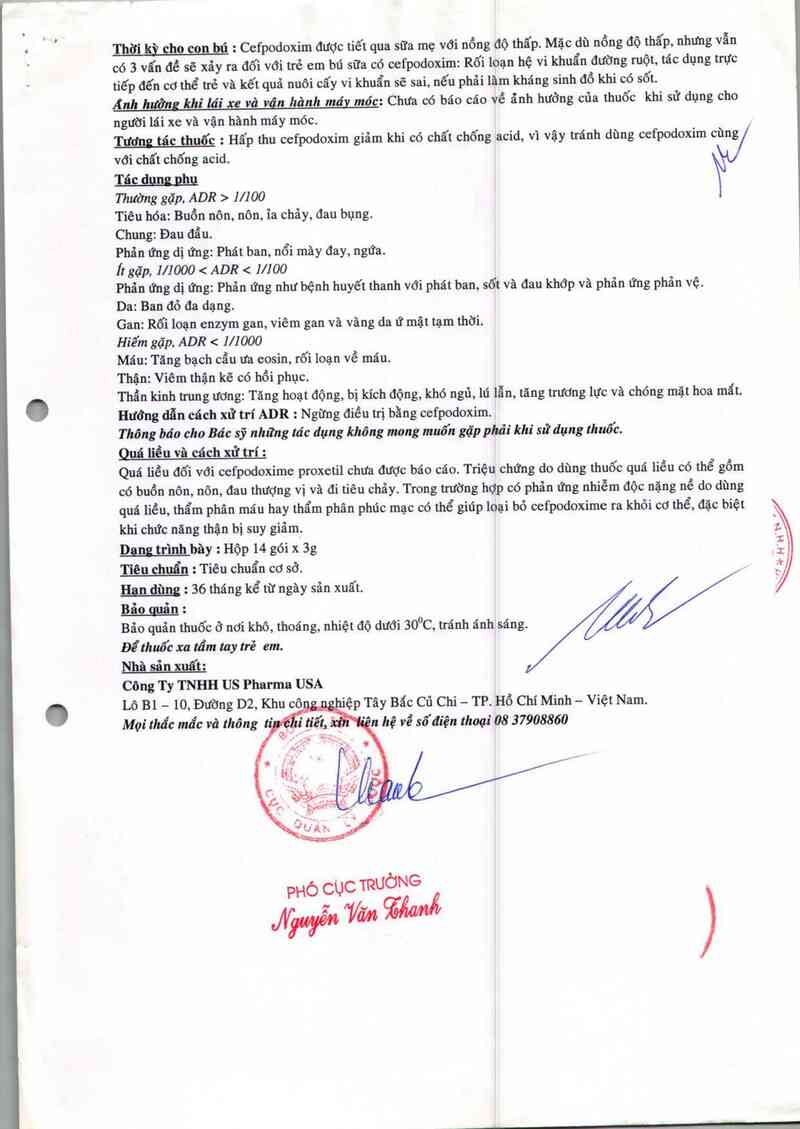 Thời kỳ cho con bú : Cefpodoxim được tiết qua sữa mẹ với nồng độ thấp. Mặc dù nồng độ thấp, nhưng vẫn
có 3 vấn đề sẽ xảy ra đối với trẻ em bú sữa có cefpodoxim: Rối loạn hệ vi khuẩn đường ruột, tác dụng trực
tiếp đến cơ thể trẻ và kết quả nuôi cấy vi khuẩn sẽ sai, nếu phải làm kháng sinh đồ khi có sốt.
Ảnh hưởng khi lái xe và vận hành máy móc: Chưa có báo cáo về ảnh hưởng của thuốc khi sử dụng cho
người lái xe và vận hành máy móc.
Tương tác thuốc : Hấp thu cefpodoxim giảm khi có chất chống acid, vì vậy tránh dùng cefpodoxim cùng
với chất chống acid.
Tác dụng phụ
Thường gặp, ADR > 1/100
Tiêu hóa: Buồn nôn, nôn, ỉa chảy, đau bụng.
Chung: Đau đầu.
Phản ứng dị ứng: Phát ban, nổi mày đay, ngứa.
Ít gặp, 1/1000 < ADR < 1/100
Phản ứng dị ứng: Phản ứng như bệnh huyết thanh với phát ban, sốt và đau khớp và phản ứng phản vệ.
Da: Ban đỏ đa dạng.
Gan: Rối loạn enzym gan, viêm gan và vàng da ứ mật tạm thời.
Hiếm gặp, ADR < 1/1000
Máu: Tăng bạch cầu ưa eosin, rối loạn về máu.
Thận: Viêm thận kẽ có hồi phục.
Thần kinh trung ương: Tăng hoạt động, bị kích động, khó ngủ, lú lẫn, tăng trương lực và chóng mặt hoa mắt.
Hướng dẫn cách xử trí ADR : Ngừng điều trị bằng cefpodoxim.
Thông báo cho Bác sỹ những tác dụng không mong muốn gặp phải khi sử dụng thuốc.
Quá liều và cách xử trí :
Quá liều đối với cefpodoxime proxetil chưa được báo cáo. Triệu chứng do dùng thuốc quá liều có thể gồm
có buồn nôn, nôn, đau thượng vị và đi tiêu chảy. Trong trường hợp có phản ứng nhiễm độc nặng nề do dùng
quá liều, thẩm phân máu hay thẩm phân phúc mạc có thể giúp loại bỏ cefpodoxime ra khỏi cơ thể, đặc biệt
khi chức năng thận bị suy giảm.
Dạng trình bày : Hộp 14 gói x 3g
Tiêu chuẩn : Tiêu chuẩn cơ sở.
Hạn dùng : 36 tháng kể từ ngày sản xuất.
Bảo quản :
Bảo quản thuốc ở nơi khô, thoáng, nhiệt độ dưới 30⁰C, tránh ánh sáng.
Để thuốc xa tầm tay trẻ em.
Nhà sản xuất:
Công Ty TNHH US Pharma USA
Lô B1 – 10, Đường D2, Khu công nghiệp Tây Bắc Củ Chi – TP. Hồ Chí Minh – Việt Nam.
Mọi thắc mắc và thông tin chi tiết, xin liên hệ về số điện thoại 08 37908860
CỤC QUẢN LÝ DƯỢC
PHÓ CỤC TRƯỞNG
Nguyễn Văn Thanh